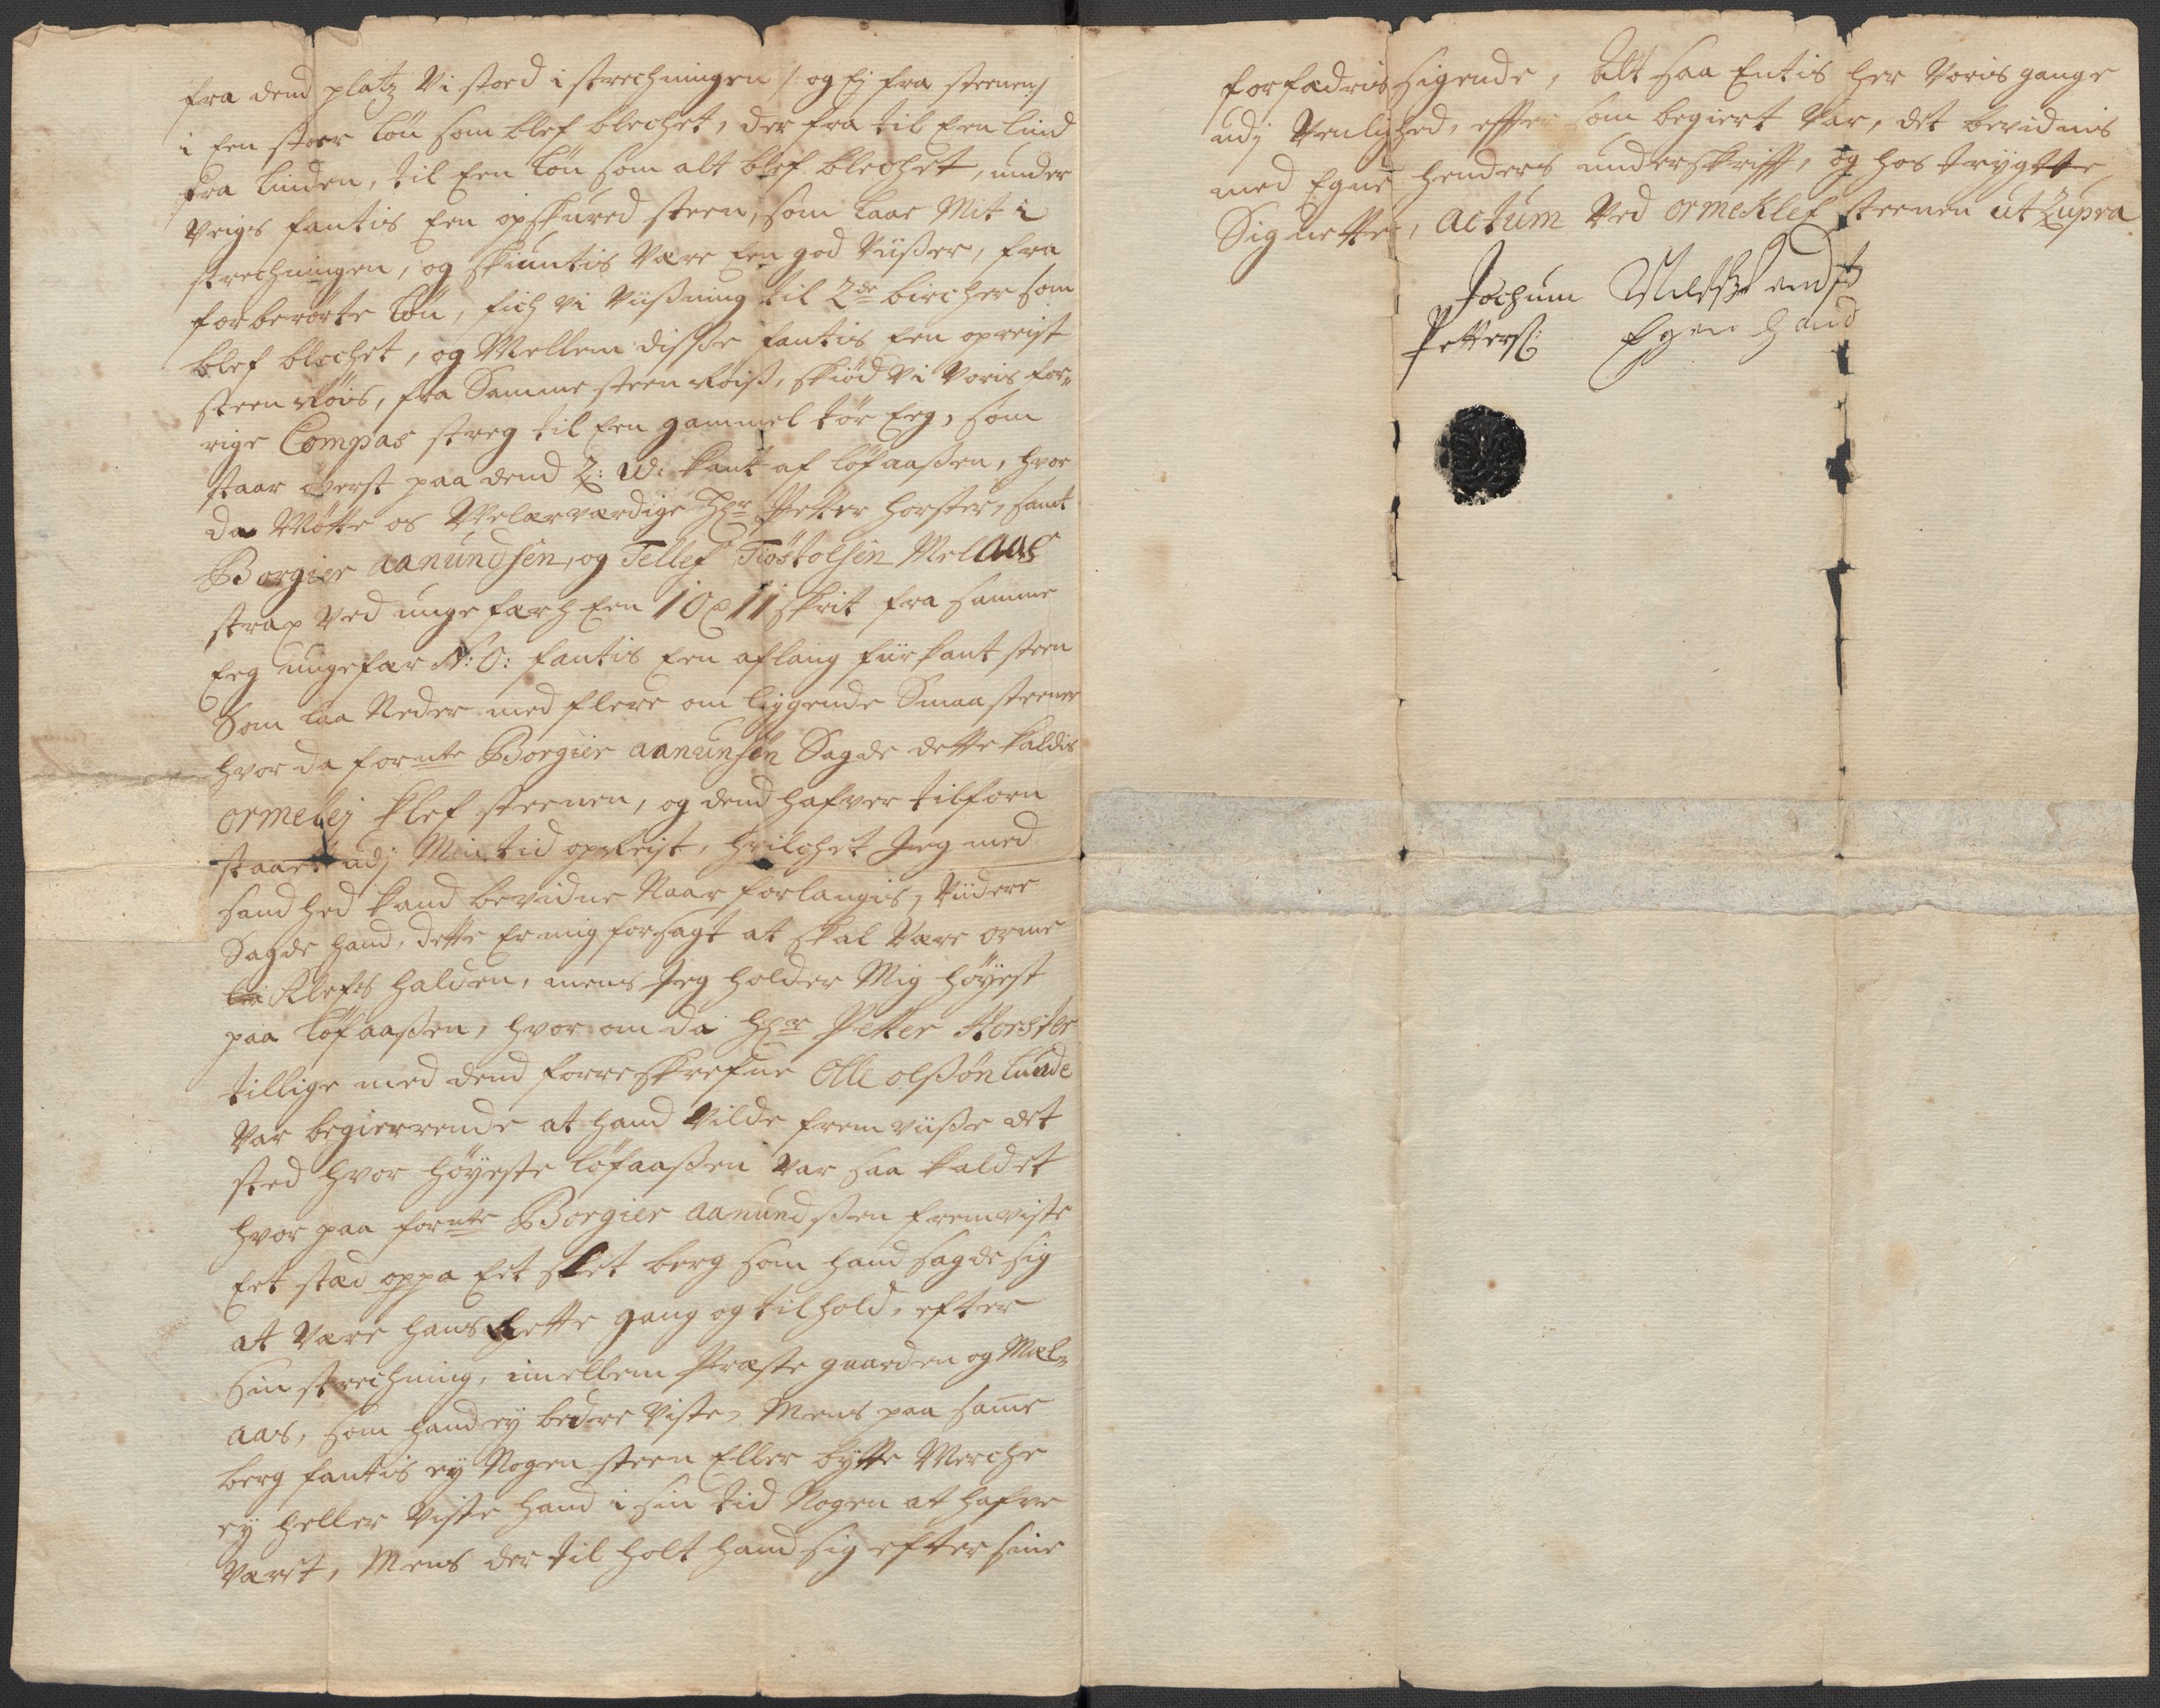 fra dend platz Vi stoed i strechningen /: og Ej fra steenen:/
i Een stoer Løn som blef blechet, der fra til Een Lind
fra Linden, til Een Løn som alt blef blechet, under
Veigs fantis Een opskured steen, som laae Mit i
strechningen, og skiøntis være Een god Viißer, fra
forberørte Løn, fich vi Viißning til 2de bircher som
blef blechet, og Mellem disße fantis Een opreist
steen Røis, fra Samme steen Røiß, skiød Vi Voris for„
rige Compas streg til Een gammel tør Eeg, som
staar øverst paa dend Z: W: kant af Løfaaßen, hvor
da Møtte os Velærværdige Hr Petter Horster, samt
Borgier Aanundsen, og Tellef Tiøstolsen Melaas
strax Ved ungefærh Een 10 a 11 skrit fra samme
Eeg ungefær N: O: fantis Een aflang fiirkant steen
Som laa Neder med flere om liggende Smaa steener
hvor da fornte Borgier Aanunsen Sagde dette kaldis
ormelej klef steenen, og dend hafver tilforn
staaet udj Min tid opreist, hvilchet Jeg med
sandhed kand bevidne Naar forlangis, Viidere
Sagde hand, dette Er mig forsagt at skal være orme
lei Klefs halden, mens Jeg holder Mig høyest
paa Løfaaßen, hvor om da Hr Petter Horster
tillige med dend forreskrefne Olle olßøn Lunde
Var begierende at hand Vilde fremviiße det
sted hvor høyeste Løfaaßen Var saa kaldet
hvor paa fornte Borgier Aanundßen fremviste
Eet stæd oppa Eet slet berg som hand sagde sig
at være hans Rette gang og tilhold, efter
Sin strechning, imellem Præste gaarden og Mel„
aas, som hand ey bedre Viste, Mens paa same
berg fantis ey Nogen steen Eller bytte Merche
ey heller Viste hand i sin tid Nogen at hafve
Været, Mens der til holt hand sig efter sine
forfædris sigende, Alt saa Entis her Voris gange
udj Venlighed, efter som begiert Var, det bevidnis
med Egne henders underskrifft, og hos trygtte
Signetter, Actum Ved ormeklef steenen ut Zupra
Jochum
Petters:
Egen Hand